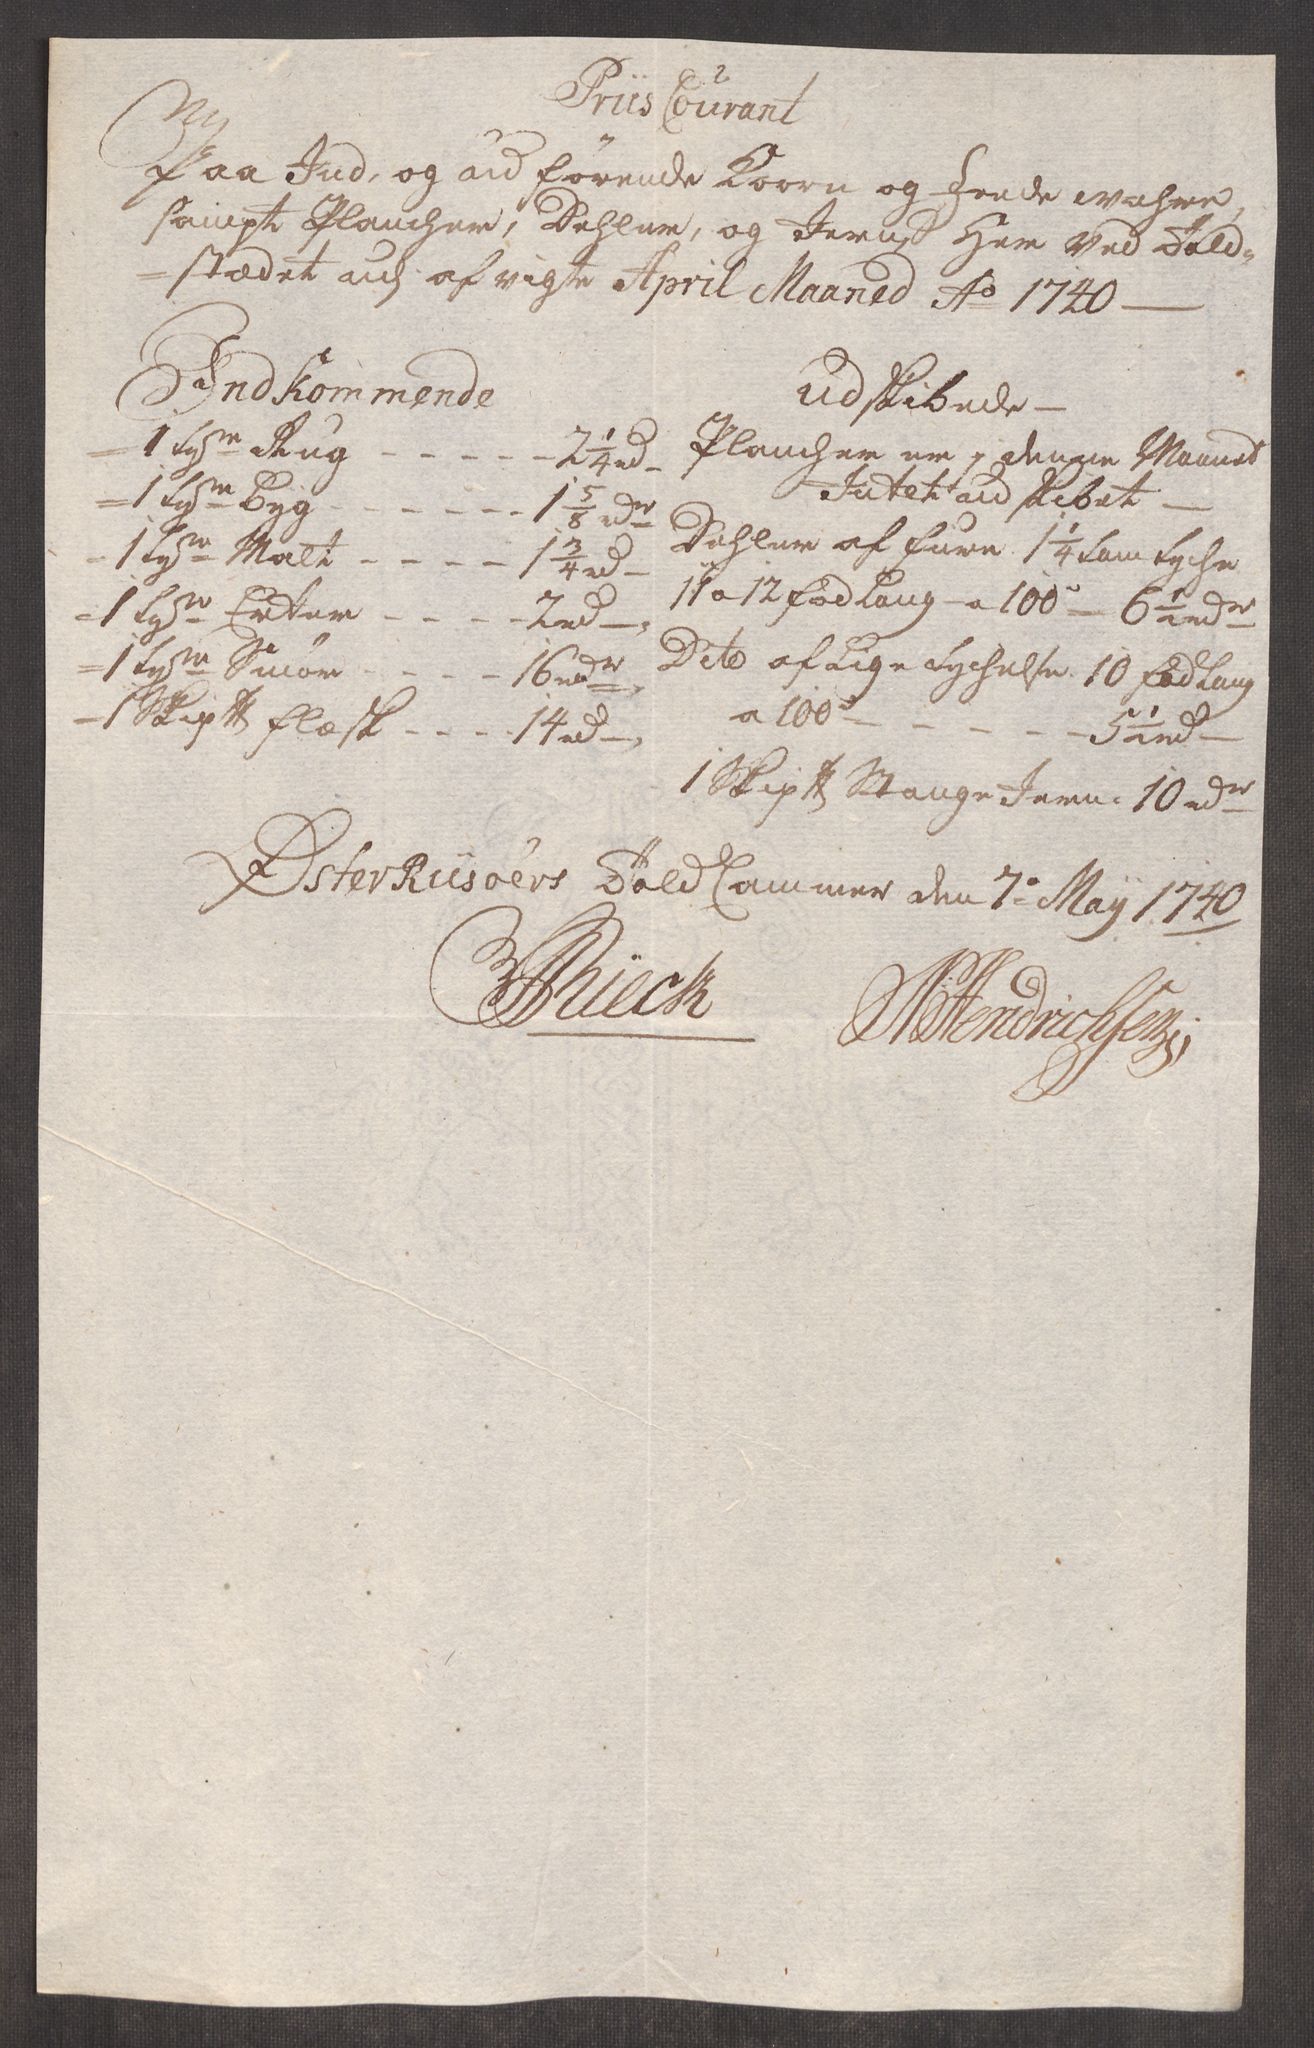 Priis Courant
Paa Ind, og ud førende Koorn og fede wahre,
sampt Plancker, Dehler, og Jern, Her Ved Told-
=stædet udj afvigte April Maaned Ao 1740 —
Indkommende
=1 tyne Rug - - - - - 2 1/4 rd -
=1 tyne Byg - - - - - - 1 5/8 rdr
-1 tyne Malt - - - - 1 3/4 rd -
=1 tyne Erter - - - - 2 rd -,
=1 tyne Smør - - - - 16 rdr,
-1 Skip ℔ flæsk - - - - 14 rd -,
udskibede -
Plancker er j denne Maaned
Intet udskibet —
Dehler af furre 1 1/4 tom tyche
11 a 12 fod Lang - a 100 - 6 1/2 rdr
Dito af Lige tychelse 10 fod Lang
a 100 - - - - - 5 1/2 rd -
1 Skip ℔ Stange Jern. 10 rdr
ØsterRiisøers Told Cammer den 7de Maij 1740
Rieck
NHendrichsen